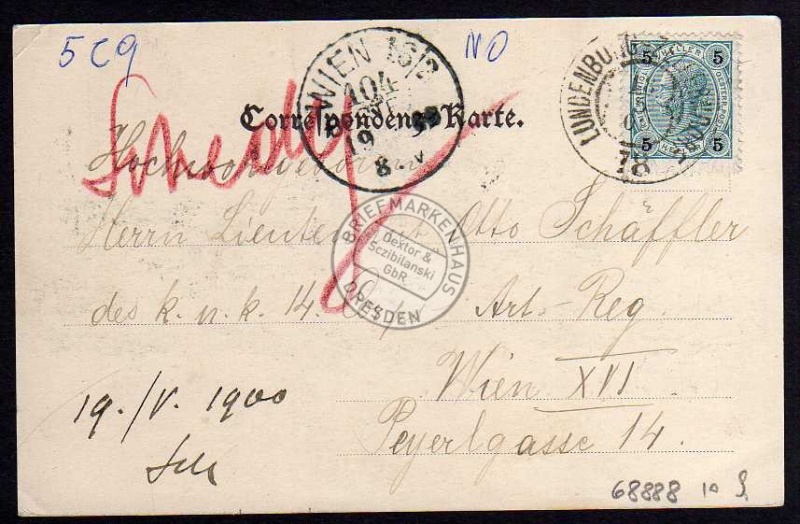 5C9
NO
WIEN 16/2
104
19
8. V
LUNDENBURG
18
5 5
5 5
Correspondenz-Karte.
Hochwohlgeboren
Herrn Lieutenant Otto Schäffler
des k. u. k. 14. Art.-Reg.
Wien XVI
Peyerlgasse 14.
19./V. 1900
BRIEFMARKENHAUS
Dextor &
Sczibilanski
GbR
DRESDEN
68888 10